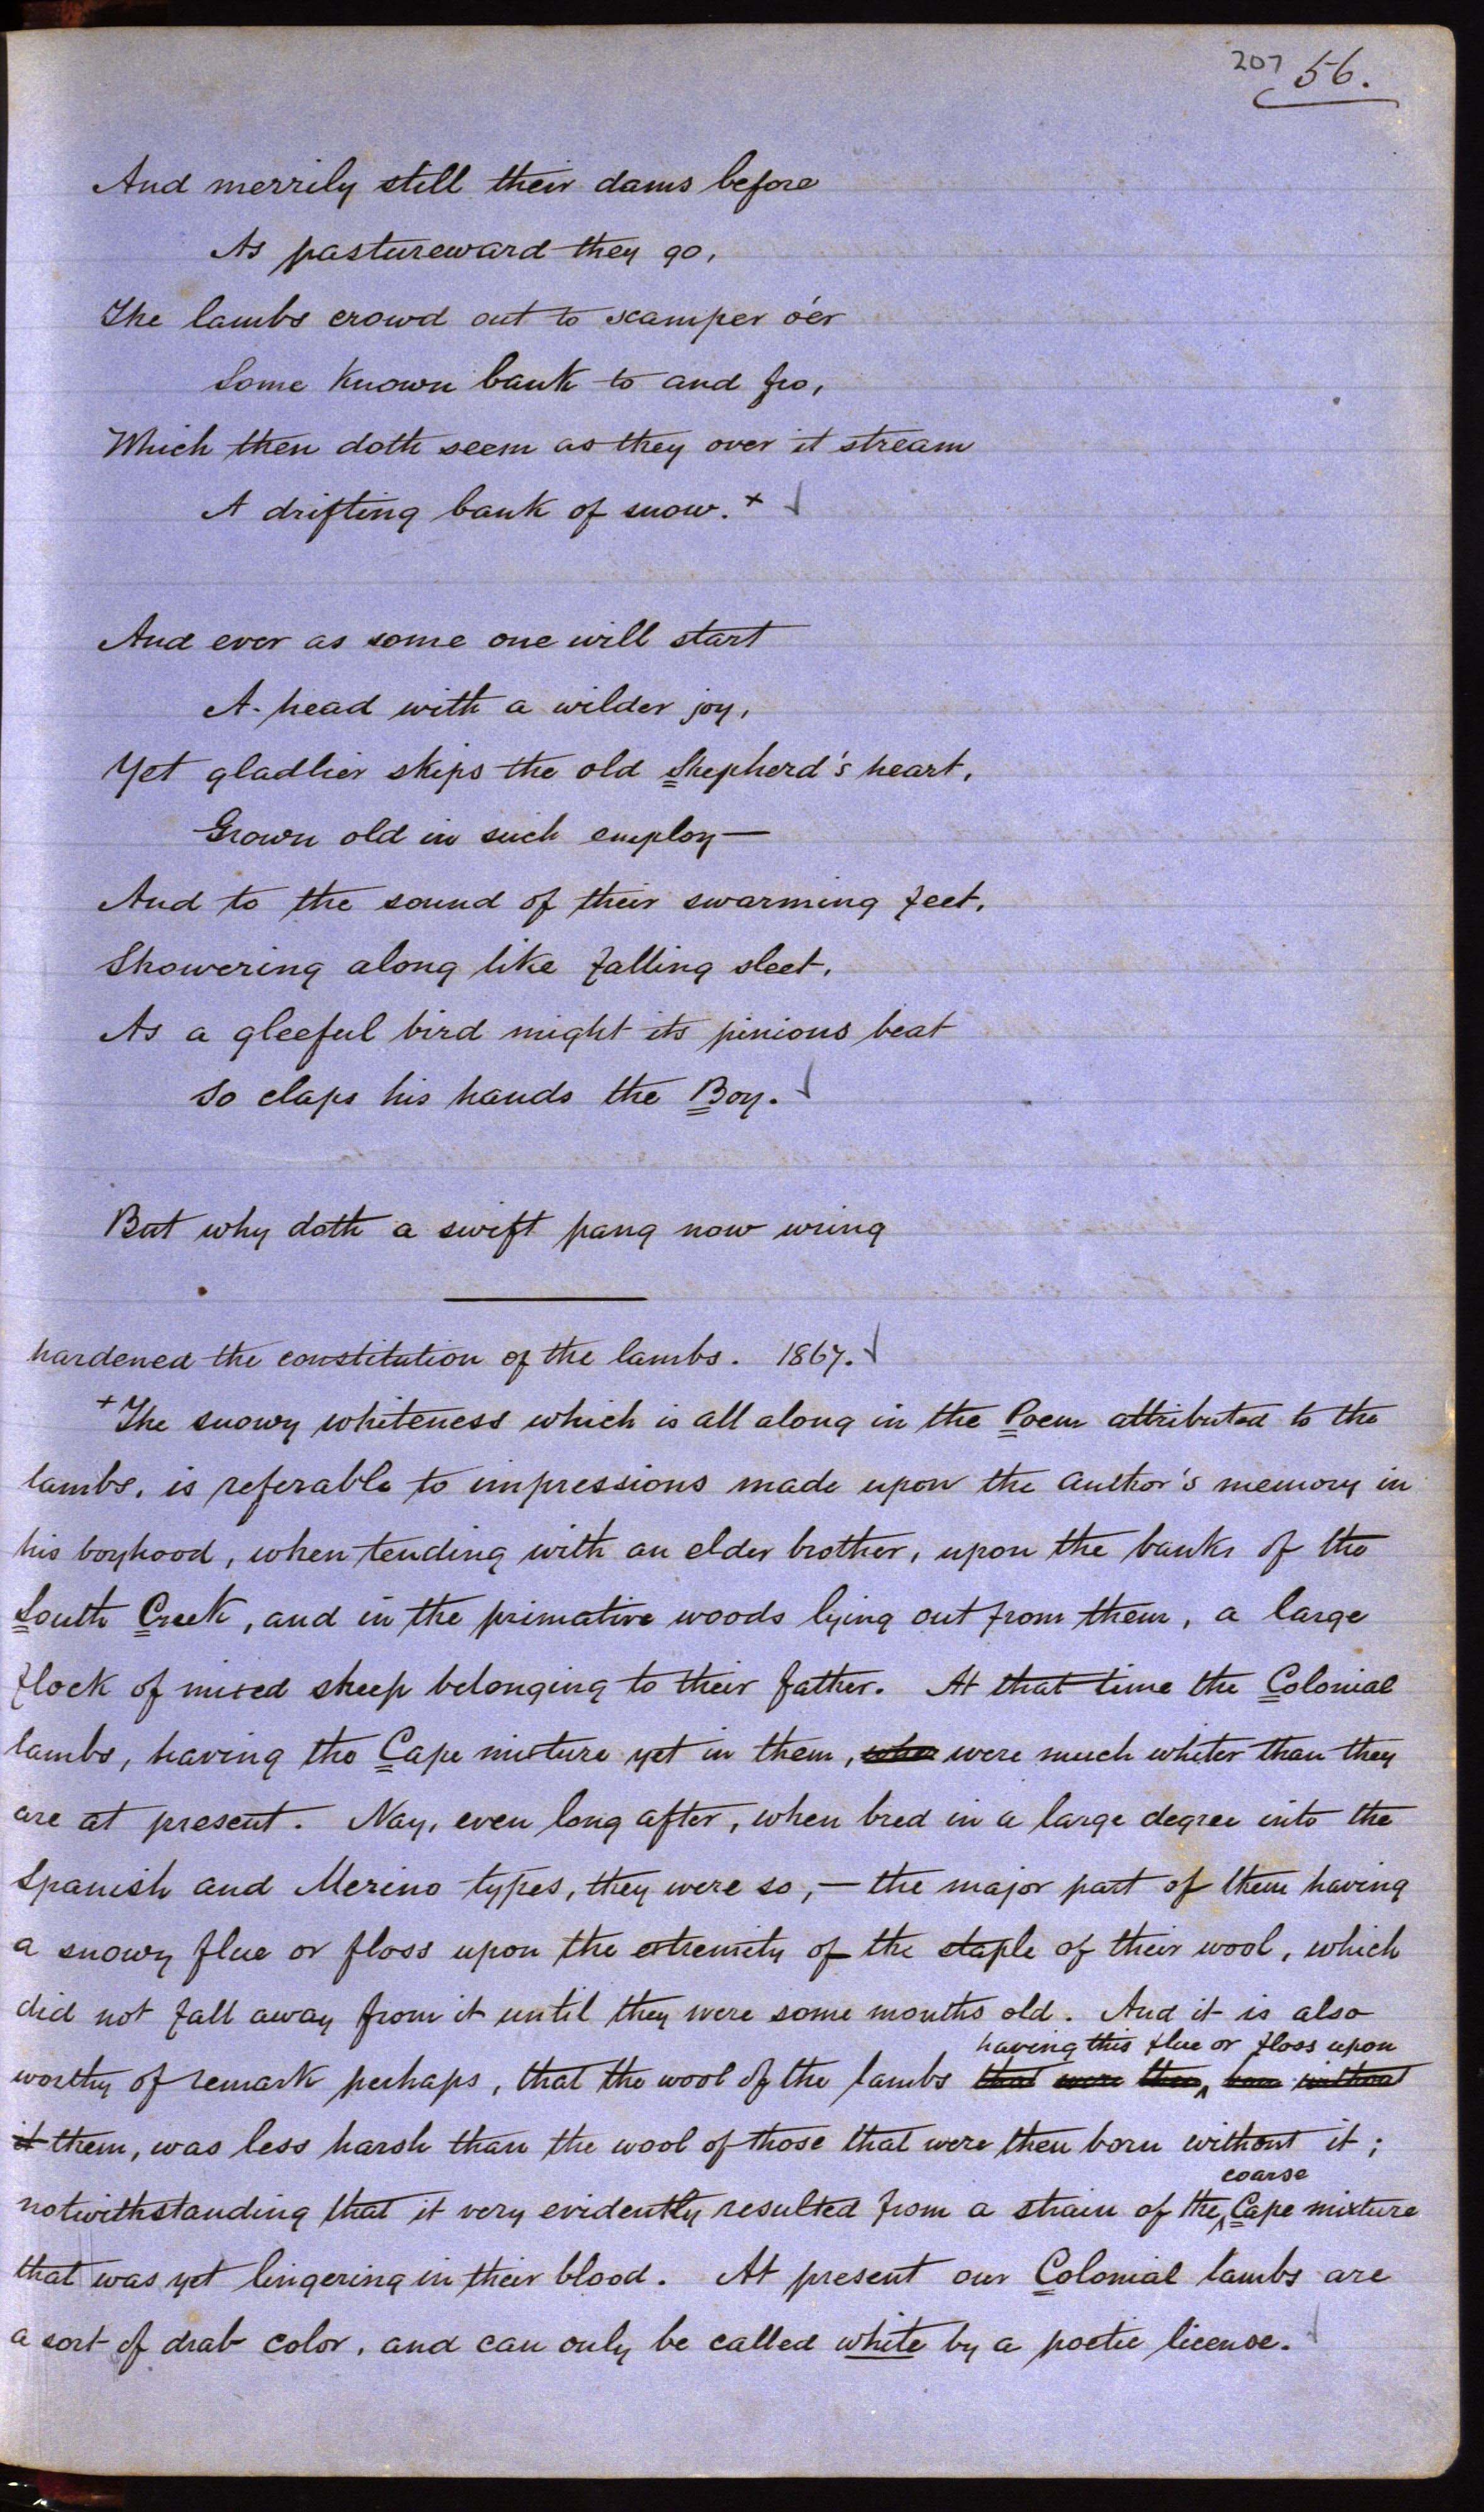 207 56.
And merrily still their dams before
As pastureward they go,
The lambs crowd out to scamper o'er
Some known bank to and fro,
Which then doth seem as they over it stream
A drifting bank of snow. +
And ever as some one will start
A-head with a wilder joy,
Yet gladlier skips the old Shepherd's heart,
Grown old in such employ —
And to the sound of their swarming feet,
Showering along like falling sleet,
As a gleeful bird might its pinions beat
So claps his hands the Boy.
But why doth a swift pang now wring
hardened the constitution of the lambs. 1867.
+ The snowy whiteness which is all along in the Poem attributed to the
lambs, is referable to impressions made upon the author's memory in
his boyhood, when tending with an elder brother, upon the banks of the
South Creek, and in the primative woods lying out from them, a large
flock of mixed sheep belonging to their father. At that time the Colonial
lambs, having the Cape mixture yet in them, were much whiter than they
are at present. Nay, even long after, when bred in a large degree into the
Spanish and Merino types, they were so, — the major part of them having
a snowy flue or floss upon the extremity of the staple of their wool, which
did not fall away from it until they were some months old. And it is also
having this flue or floss upon
worthy of remark perhaps, that the wool of the lambs that were then born without
it them, was less harsh than the wool of those that were then born without it;
coarse
notwithstanding that it very evidently resulted from a strain of the Cape mixture
that was yet lingering in their blood. At present our Colonial lambs are
a sort of drab color, and can only be called white by a poetic license.